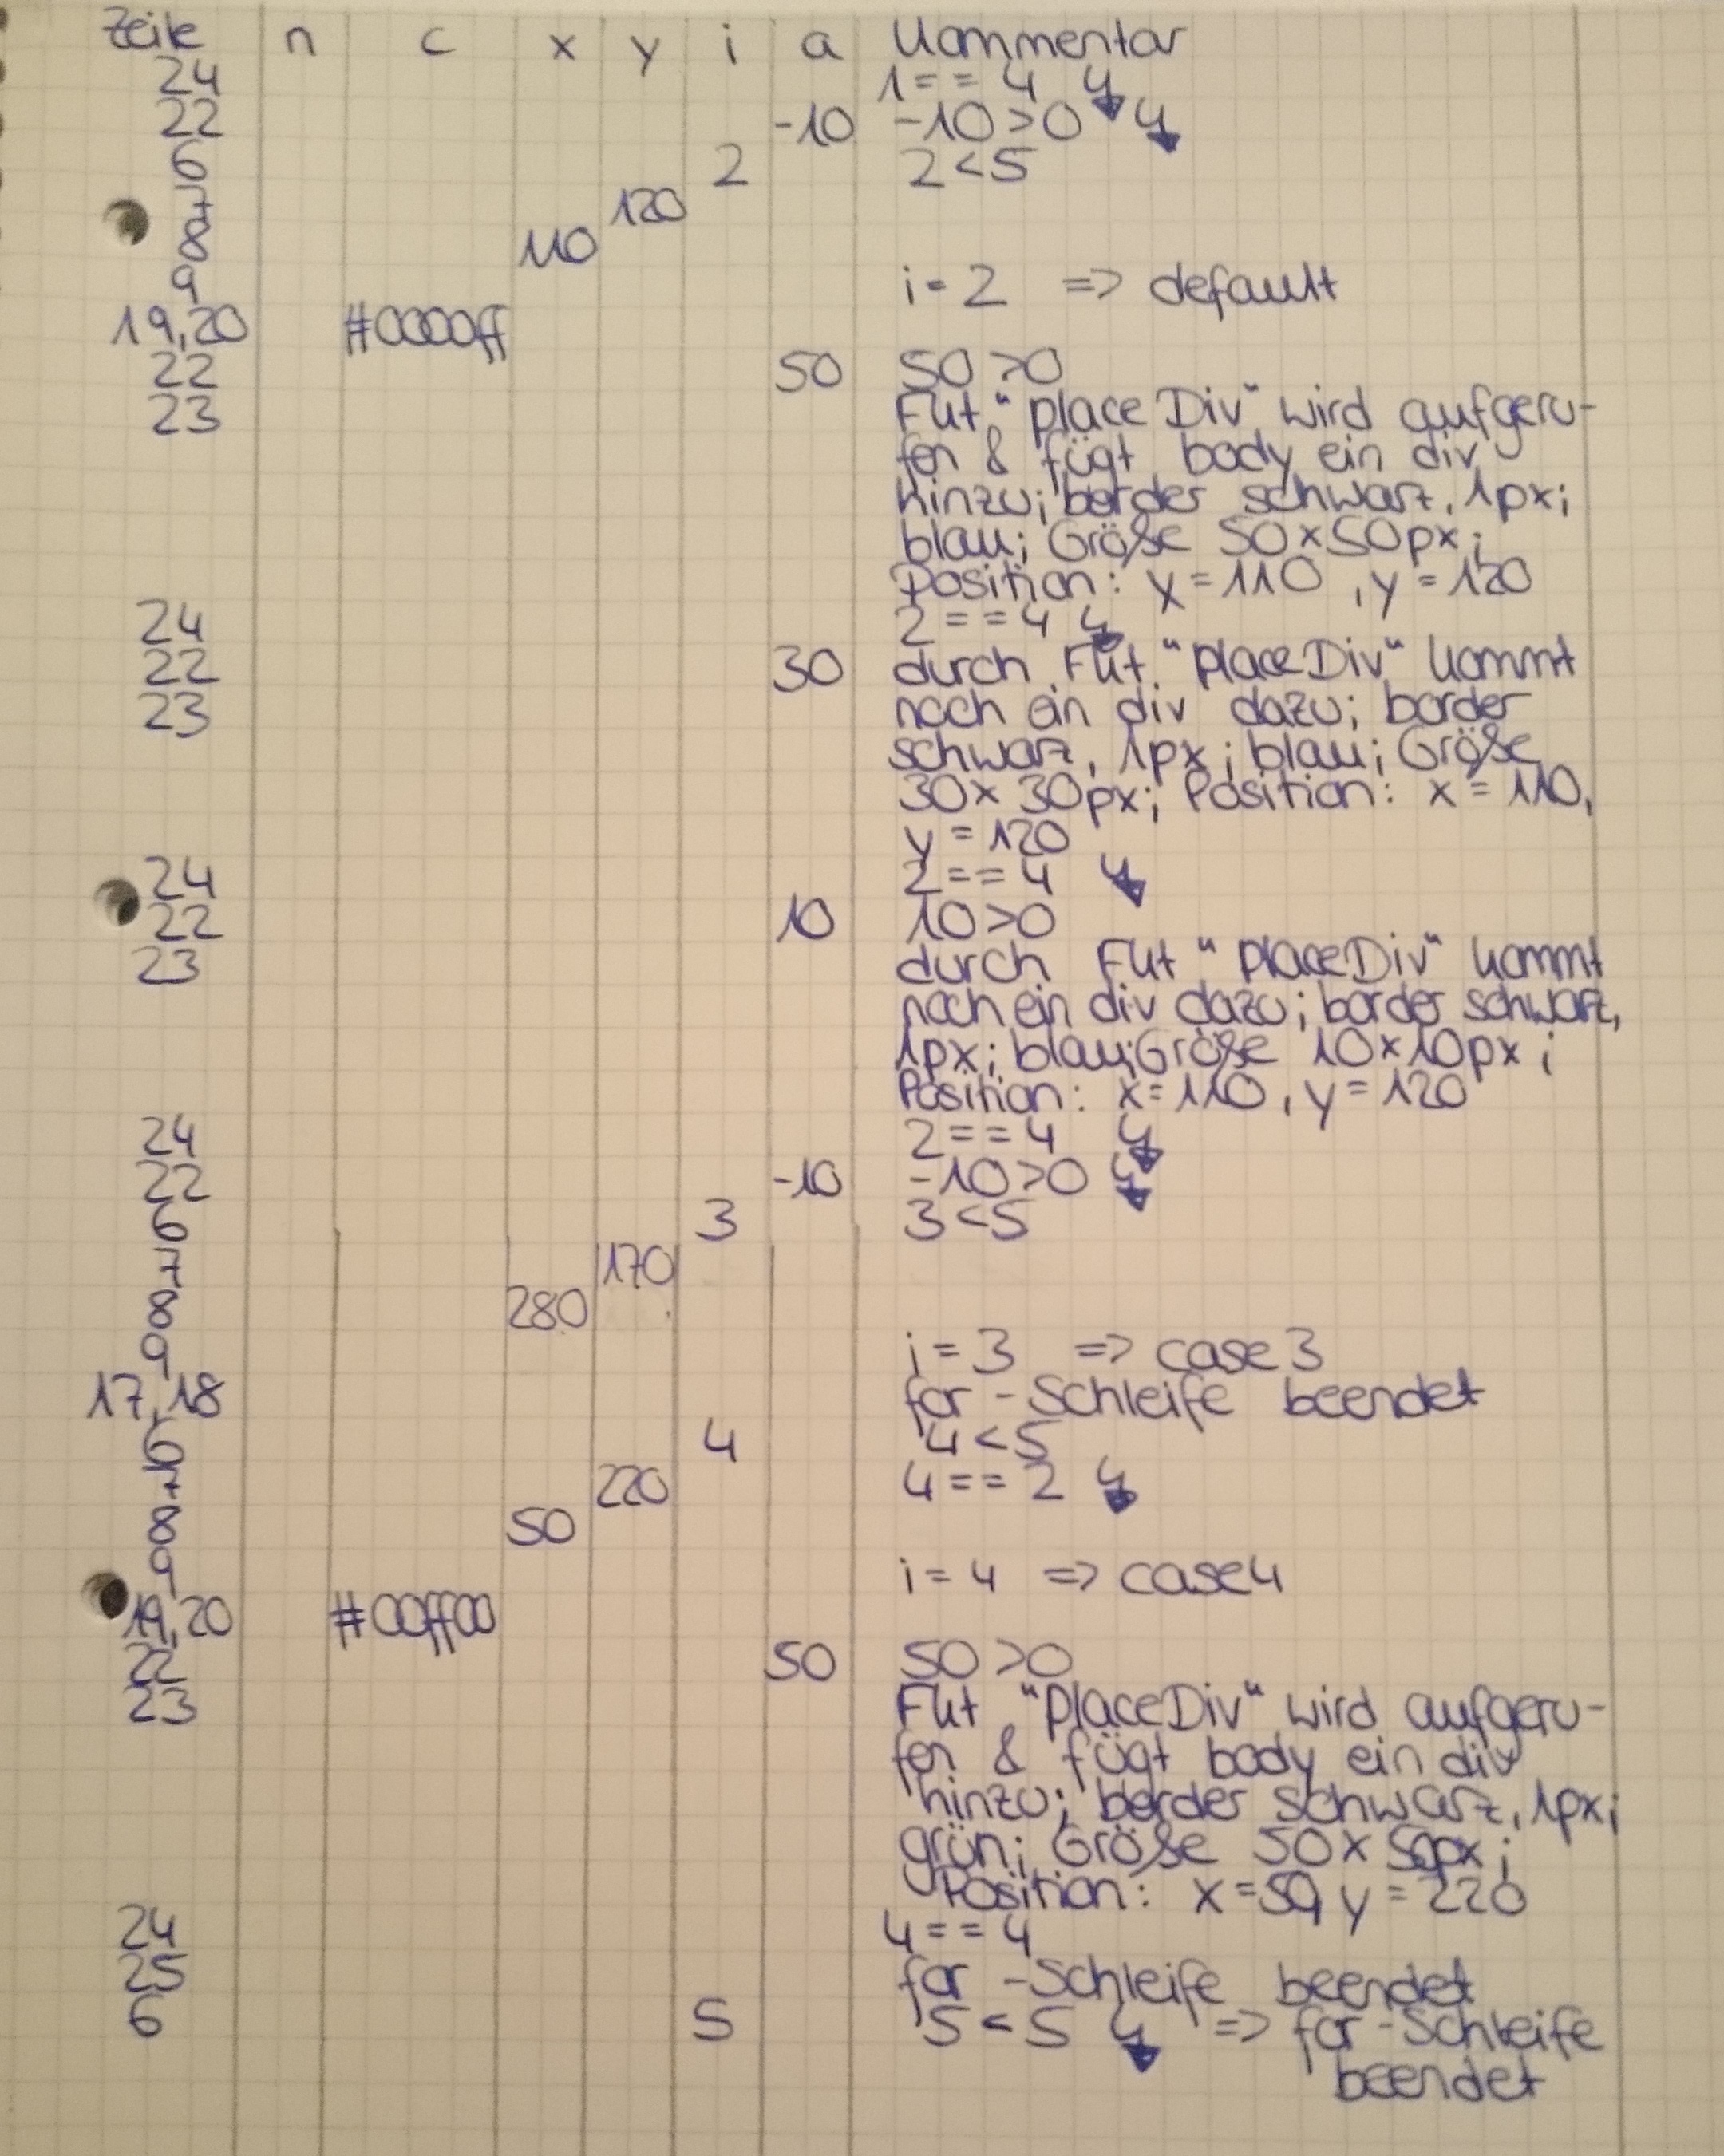 Zeile n c x y i a Kommentar
24 1 == 4 ↯
22 -10 -10 > 0 ↯
6 2 2 < 5
7 120
8 110
9 i = 2 => default
19,20 #0000ff
22 50 50 > 0
23 Fkt "placeDiv" wird aufgeru-
fen & fügt body ein div
hinzu; border schwarz, 1px;
blau; Größe 50x50px;
Position: x = 110, y = 120
24 2 == 4 ↯
22 30 durch Fkt "placeDiv" kommt
23 noch ein div dazu; border
schwarz, 1px; blau; Größe
30x30px; Position: x = 110,
y = 120
24 2 == 4 ↯
22 10 10 > 0
23 durch Fkt "placeDiv" kommt
noch ein div dazu; border schwarz,
1px; blau; Größe 10x10px;
Position: x = 110, y = 120
24 2 == 4 ↯
22 -10 -10 > 0 ↯
6 3 3 < 5
7 170
8 280
9 i = 3 => case 3
17,18 for-Schleife beendet
6 4 4 < 5
7 220 4 == 2 ↯
8 50
9 i = 4 => case 4
19,20 #00ff00
22 50 50 > 0
23 Fkt "placeDiv" wird aufgeru-
fen & fügt body ein div
hinzu; border schwarz, 1px;
grün; Größe 50x50px;
Position: x = 50, y = 220
24 4 == 4
25 for-Schleife beendet
6 5 5 < 5 ↯ => for-Schleife
beendet